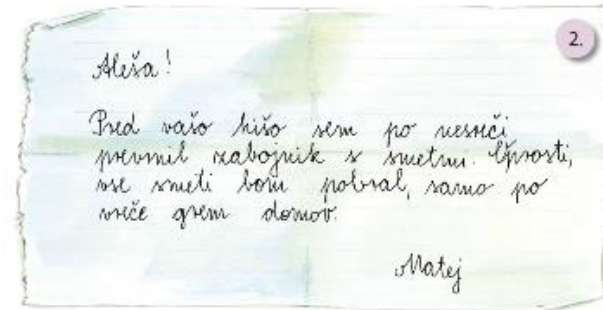 2.
Aleša!
Pred vašo hišo sem po nesreči
prevrnil zabojnik s smetmi. Oprosti,
vse smeti bom pobral, samo po
vreče grem domov.
Matej